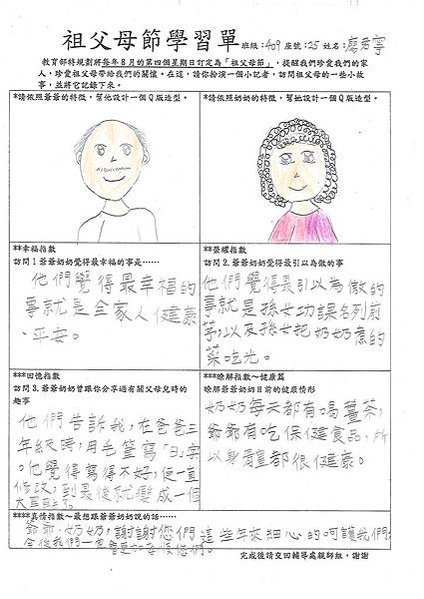 祖父母節學習單 班級：409 座號：25 姓名：廖君寧
教育部特規劃將每年8月的第四個星期日訂定為「祖父母節」，提醒我們珍愛我們的家
人，珍愛祖父母帶給我們的關懷。在這，請你扮演一個小記者，訪問祖父母的一些小故
事，並將它記錄下來。
*請依照爺爺的特徵，幫他設計一個Q版造型。
*請依照奶奶的特徵，幫她設計一個Q版造型。
**幸福指數
訪問1爺爺奶奶覺得最幸福的事是……
他們覺得最幸福的
事就是全家人健康、
平安。
**榮耀指數
訪問2.爺爺奶奶覺得最引以為傲的事
他們覺得最引以為傲的
事就是孫女功課名列前
茅，以及孫女把奶奶煮的
菜吃光。
***回憶指數
訪問3.爺爺奶奶曾跟你分享過有關父母兒時的
趣事
他們告訴我，在爸爸三
年級時，用毛筆寫「日」字
。他覺得寫得不好，便一直
修改，到最後就變成一個
***瞭解指數~健康篇
瞭解爺爺奶奶目前的健康情形
奶奶每天都有喝薑茶，
爺爺有吃保健食品，所
以身體都很健康。
****真情指數~最想跟爺爺奶奶說的話……
爺爺、奶奶，謝謝您們這些年來細心的呵護我們，
今後我們一定會更加孝順您們。
完成後請交回輔導處親師組，謝謝